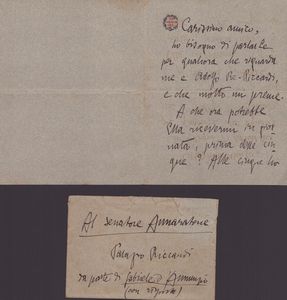 Carissimo amico,
ho bisogno di parlarle
per qualcosa che riguarda
me e Adolfo Re-Riccardi,
e che molto mi preme.
A che ora potrebbe
Ella ricevermi in gior-
nata, prima delle cin-
que? Alle cinque ho
Al senatore Annaratone
Palazzo Riccardi
da parte di Gabriele d'Annunzio
(con risposta)